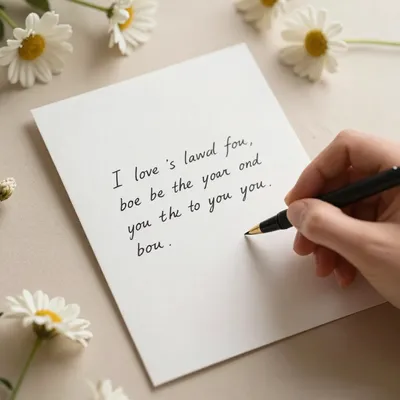 I love 's lawd fou,
boe be the year ond
you the to you you.
bou.